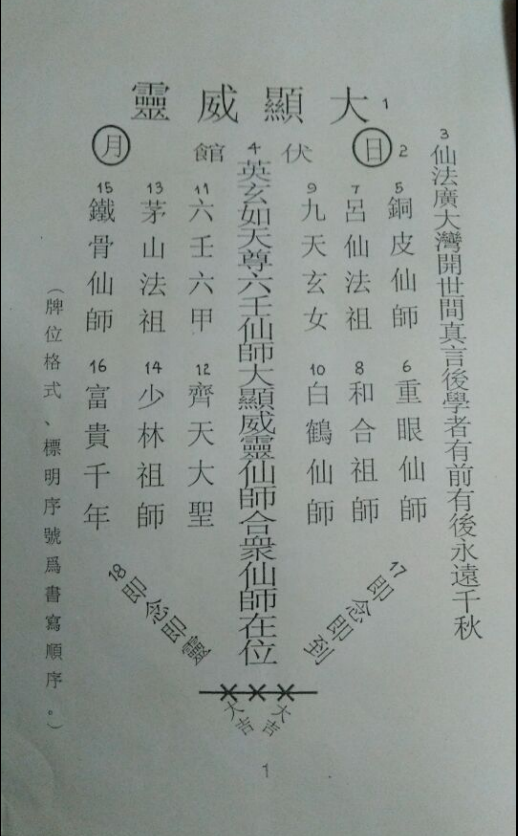 1 大顯威靈
2 日 伏館 月
3 仙法廣大灣開世間真言後學者有前有後永遠千秋
4 英玄如天尊六壬仙師大顯威靈仙師合衆仙師在位
5 銅皮仙師
6 重眼仙師
7 呂仙法祖
8 和合祖師
9 九天玄女
10 白鶴仙師
11 六壬六甲
12 齊天大聖
13 茅山法祖
14 少林祖師
15 鐵骨仙師
16 富貴千年
17 即念即到
18 即念即靈
大吉
大吉
（牌位格式、標明序號爲書寫順序。）
1